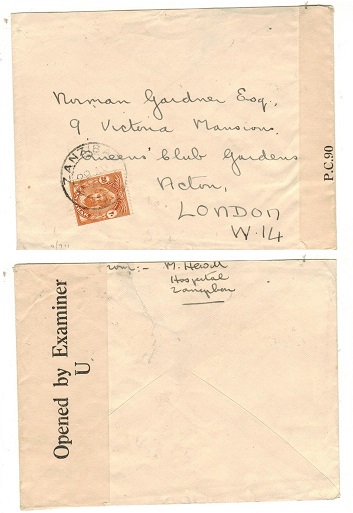 Norman Gardner Esq.,
9 Victoria Mansions,
Queens' Club Gardens
Acton,
LONDON
W.14
ZANZIBAR
P.C.90
from:- M. Hewitt
Hospital
Opened by Examiner
U